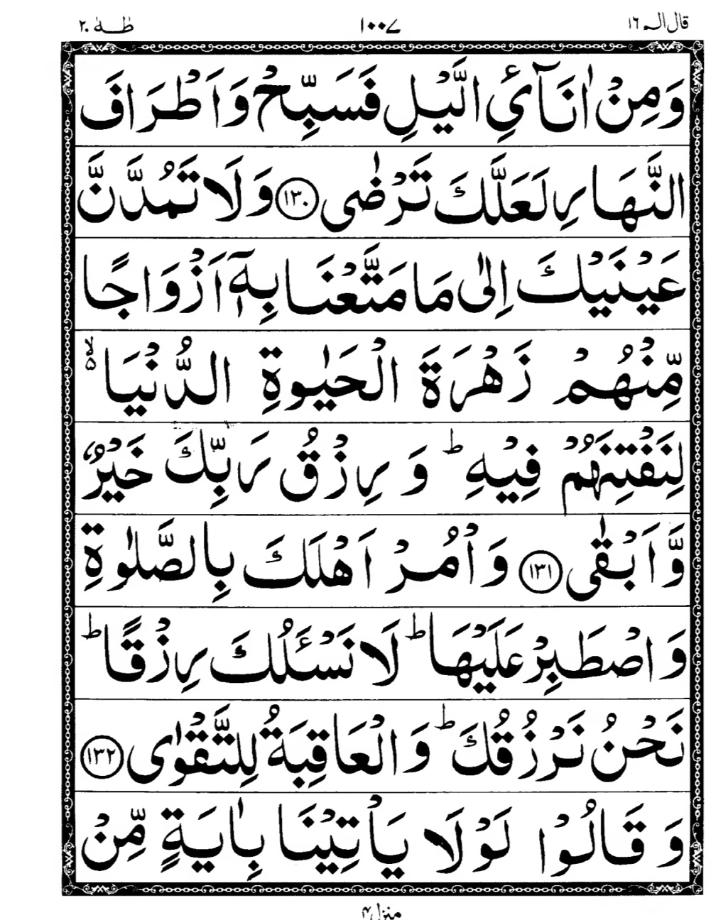 قال الم ١٦ ١٠٠٧ طٰهٰ ٢٠
وَمِنْ اٰنَآئِ الَّيْلِ فَسَبِّحْ وَاَطْرَافَ
النَّهَارِ لَعَلَّكَ تَرْضٰى ﴿١٣٠﴾ وَلَا تَمُدَّنَّ
عَيْنَيْكَ اِلٰى مَا مَتَّعْنَا بِهٖٓ اَزْوَاجًا
مِّنْهُمْ زَهْرَةَ الْحَيٰوةِ الدُّنْيَا ۙ۬
لِنَفْتِنَهُمْ فِيْهِ ؕ وَ رِزْقُ رَبِّكَ خَيْرٌ
وَّاَبْقٰى ﴿١٣١﴾ وَاْمُرْ اَهْلَكَ بِالصَّلٰوةِ
وَاصْطَبِرْ عَلَيْهَا ؕ لَا نَسْـَٔلُكَ رِزْقًا ؕ
نَحْنُ نَرْزُقُكَ ؕ وَالْعَاقِبَةُ لِلتَّقْوٰى ﴿١٣٢﴾
وَ قَالُوْا لَوْلَا يَاْتِيْنَا بِاٰيَةٍ مِّنْ
منزل ۴